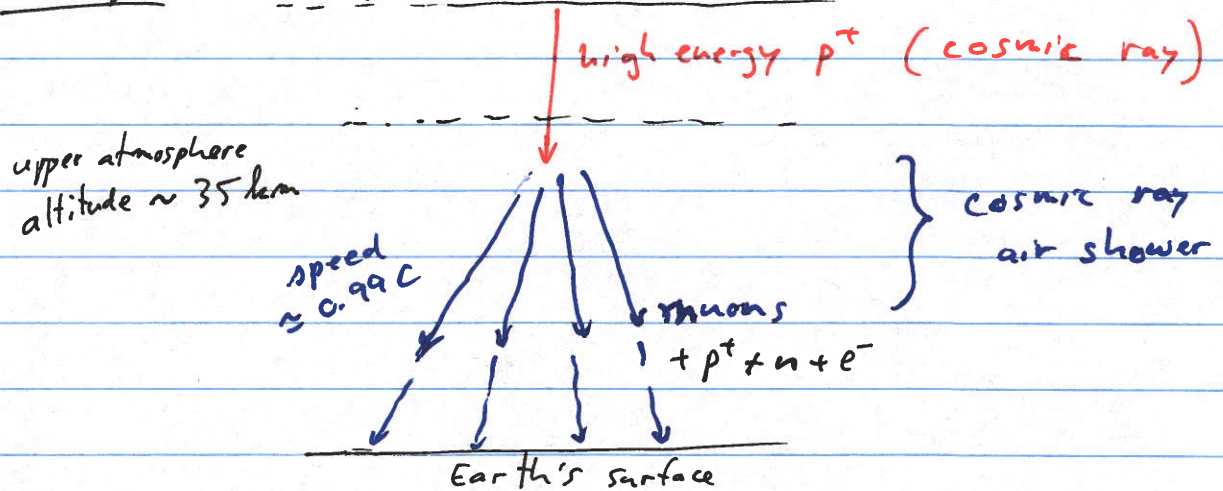 high energy p+ (cosmic ray)
upper atmosphere
altitude ~ 35 km
cosmic ray
air shower
speed
≈ 0.99C
muons
+ p+ + n + e-
Earth's surface